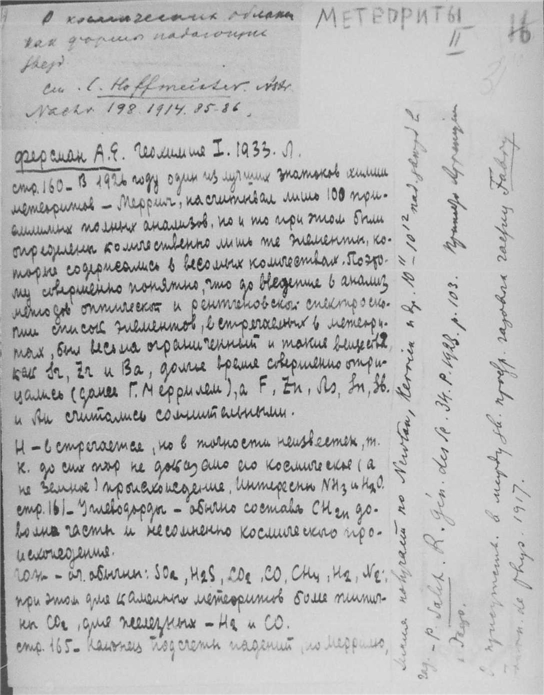 МЕТЕОРИТЫ
II
16
О космических облаках
как форма падающих
звезд
см. C. Hoffmeister. Astr.
Nachr. 198. 1914. 85-86.
Ферсман А.Е. Геохимия I. 1933. Л.
стр. 160 – В 1926 году один из лучших знатоков химии
метеоритов – Меррилл, насчитывал лишь 100 при-
емлимых полных анализов, но и то при этом были
определены количественно лишь те элементы, ко-
торые содержались в весомых количествах. Поэто-
му совершенно понятно, что до введение в анализ
методов оптической и рентгеновской спектроско-
пии список элементов, встречаемых в метеори-
тах, был весьма ограниченный и такие вещества,
как Sr, Zr и Ba, долгое время совершенно отри-
цались (даже Г. Меррилем), а F, Zn, As, Sn, Sb.
и Au считались сомнительными.
H – встречается, но в точности неизвестен, т.
к. до сих пор не доказано его космическое (а
не земное) происхождение. Интересны NH3 и H2O.
стр. 161 – Углеводорды – обычно состава CH2n до-
вольно часты и несомненно космического про-
исхождения.
газы – обычны: SO2, H2S, CO2, CO, CH4, H2, N2;
при этом для каменных метеоритов более типич-
ны CO2, для железных – H2 и CO.
стр. 165 – Наконец подсчеты падений, по Меррилю,
Земля получает по Newton, Kerolin и др. 10¹¹ – 10¹² пад. звезд в
год – P. Salet. R. gén. des 1923, p. 103.
в между зв. простр. Fabry
de phys. 1917.